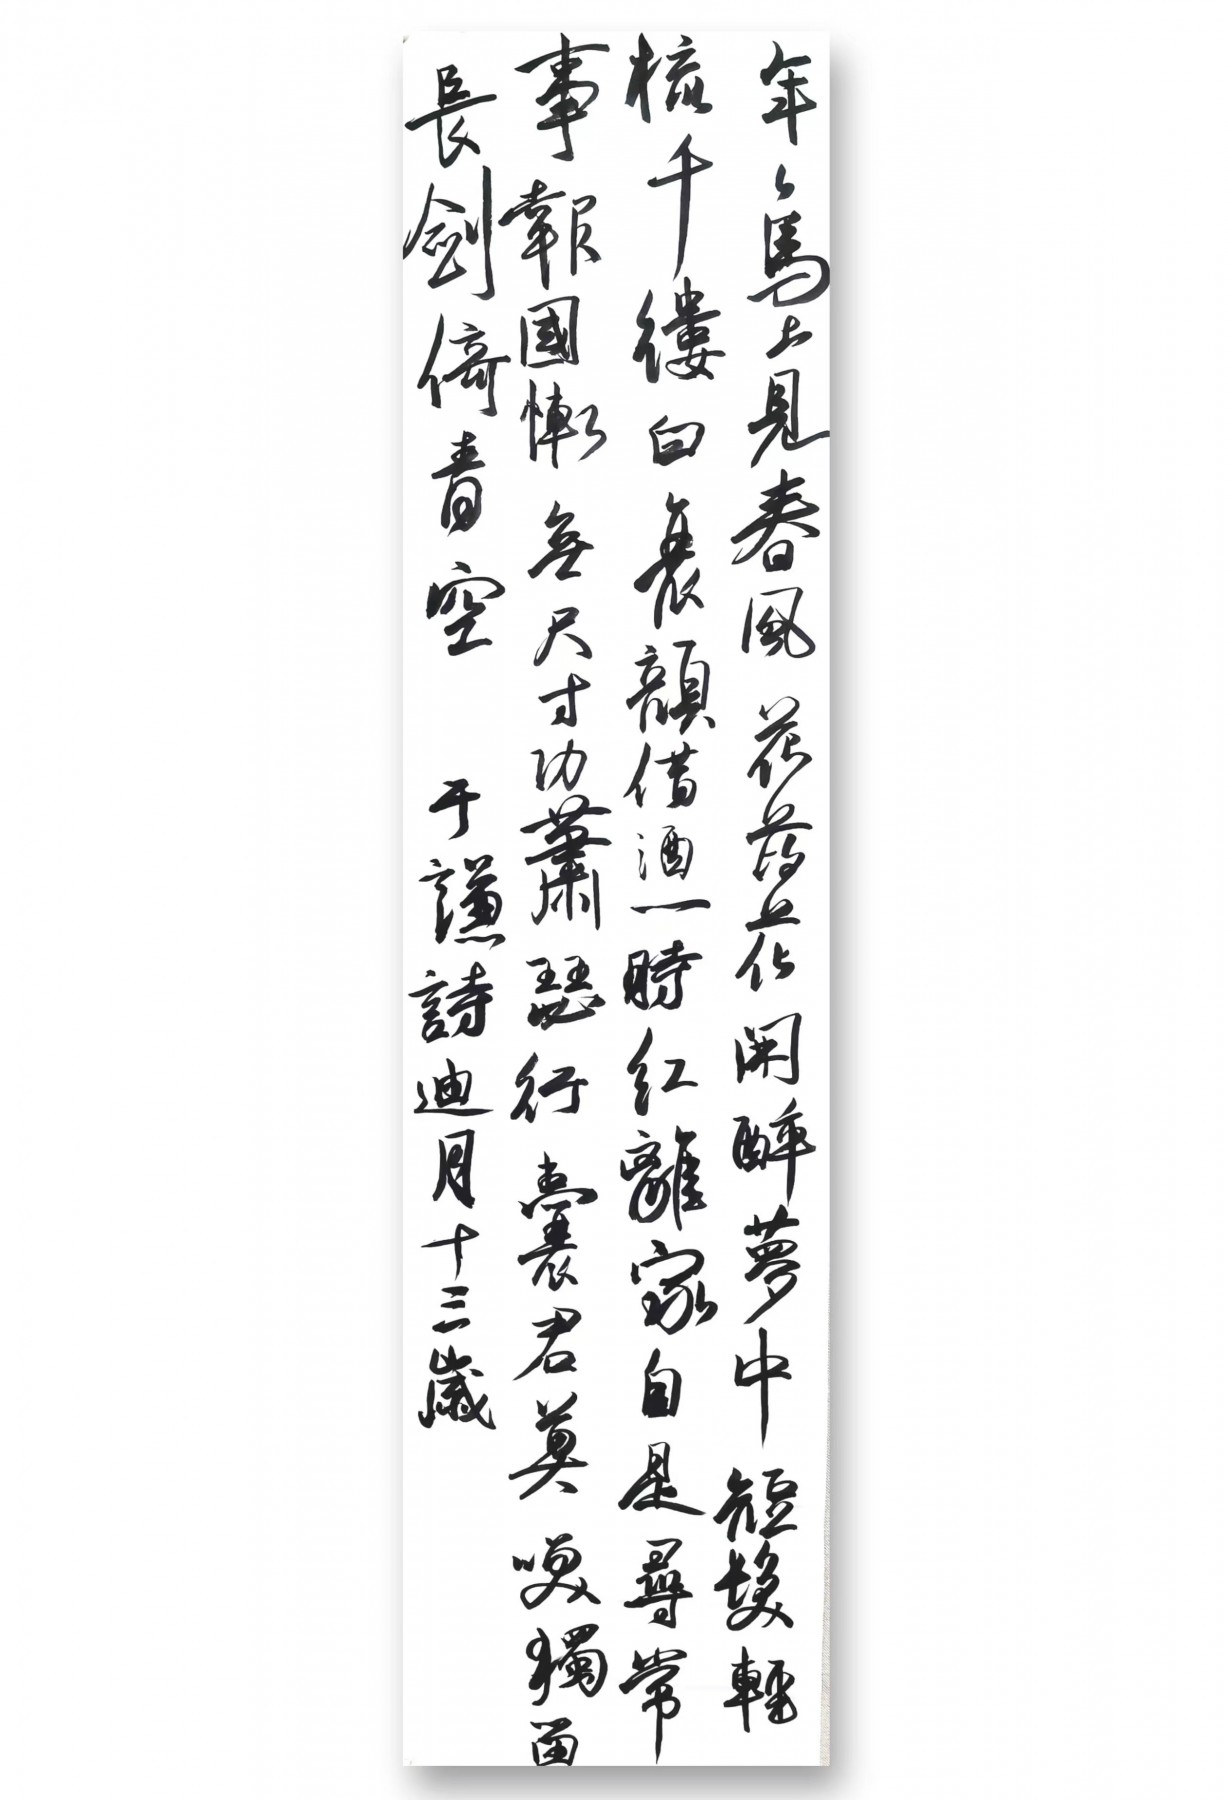 年〻馬上見春風花落花開醉夢中短髮輕
梳千縷白衰顏借酒一時紅離家自是尋常
事報國慚無尺寸功蕭瑟行囊君莫笑獨留
長劍倚青空 于謙詩迪月十三歲